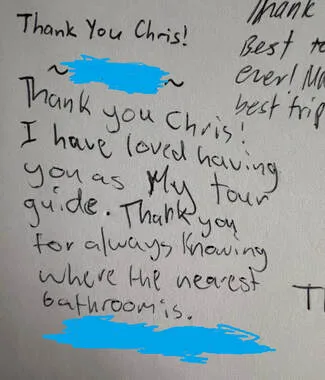 Thank You Chris!
~ ~
Thank you Chris!
I have loved having
you as My tour
guide. Thank you
for always knowing
where the nearest
bathroom is.
Thank
Best to
ever! Ma
best trip
T